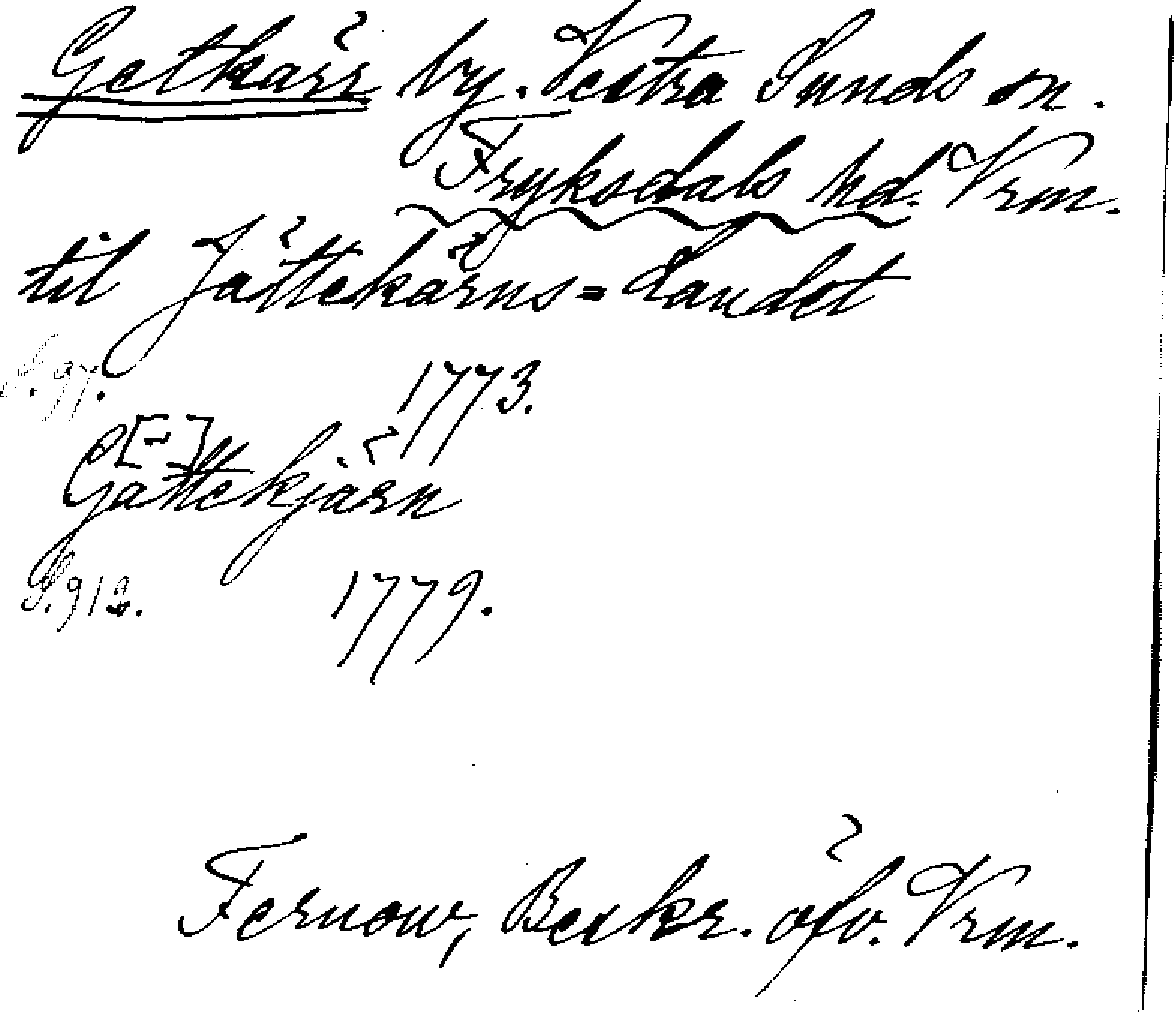 Getkärr by. Vestra Sunds sn.
Fryksdals hd. Vrm.
til Jättekärns=Landet
S. 97. 1773.
G[-]ättekjärn
S. 912. 1779.
Fernow, Beskr. öfv. Vrm.